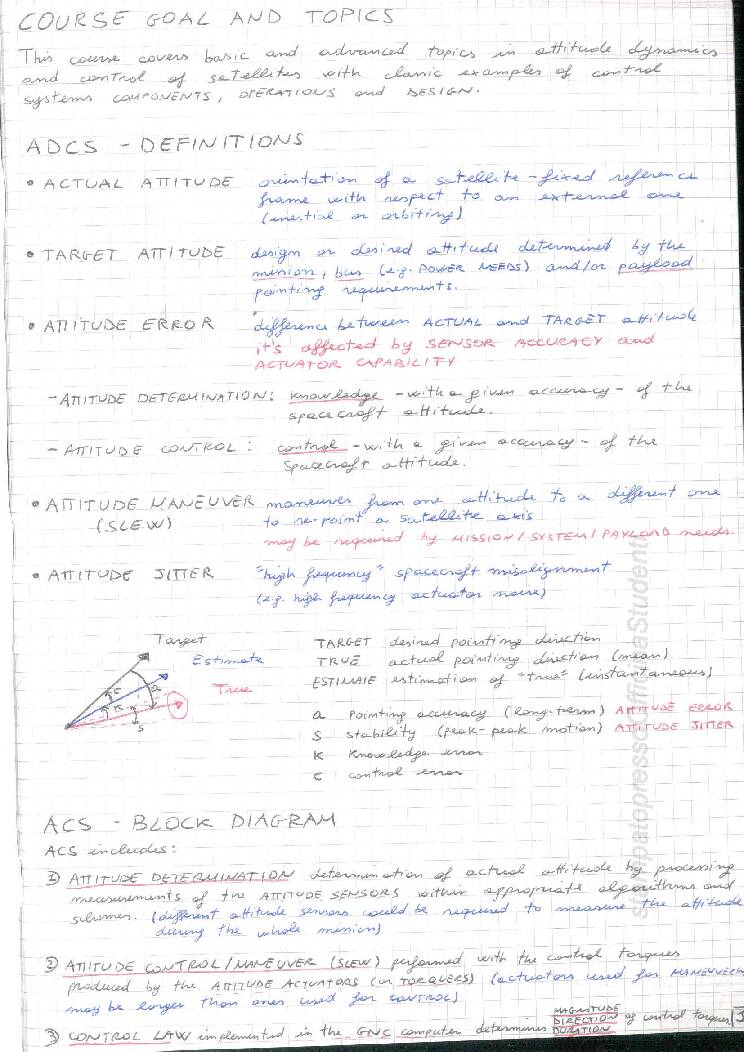 COURSE GOAL AND TOPICS
This course covers basic and advanced topics in attitude dynamics
and control of satellites with classic examples of control
systems COMPONENTS, OPERATIONS and DESIGN.
ADCS - DEFINITIONS
• ACTUAL ATTITUDE orientation of a satellite-fixed reference
frame with respect to an external one
(inertial or orbiting)
• TARGET ATTITUDE design or desired attitude determined by the
mission, bus (e.g. POWER NEEDS) and/or payload
pointing requirements.
• ATTITUDE ERROR difference between ACTUAL and TARGET attitude
it's affected by SENSOR ACCURACY and
ACTUATOR CAPABILITY
- ATTITUDE DETERMINATION: knowledge - with a given accuracy - of the
spacecraft attitude.
- ATTITUDE CONTROL: control - with a given accuracy - of the
spacecraft attitude.
• ATTITUDE MANEUVER maneuver from one attitude to a different one
(SLEW) to re-point a satellite axis
may be required by MISSION/SYSTEM/PAYLOAD needs.
• ATTITUDE JITTER "high frequency" spacecraft misalignment
(e.g. high frequency actuator noise)
Target
Estimate
True
c
a
K
s
TARGET desired pointing direction
TRUE actual pointing direction (mean)
ESTIMATE estimation of "true" (instantaneous)
a pointing accuracy (long-term) ATTITUDE ERROR
s stability (peak-peak motion) ATTITUDE JITTER
K knowledge error
c control error
ACS - BLOCK DIAGRAM
ACS includes:
1) ATTITUDE DETERMINATION determination of actual attitude by processing
measurements of the ATTITUDE SENSORS within appropriate algorithms and
schemes. (different attitude sensors could be required to measure the attitude
during the whole mission)
2) ATTITUDE CONTROL/MANEUVER (SLEW) performed with the control torques
produced by the ATTITUDE ACTUATORS (or TORQUERS) (actuators used for MANEUVERING
may be larger than ones used for CONTROL)
3) CONTROL LAW implemented in the GNC computer determines MAGNITUDE
DIRECTION of control torques
DURATION